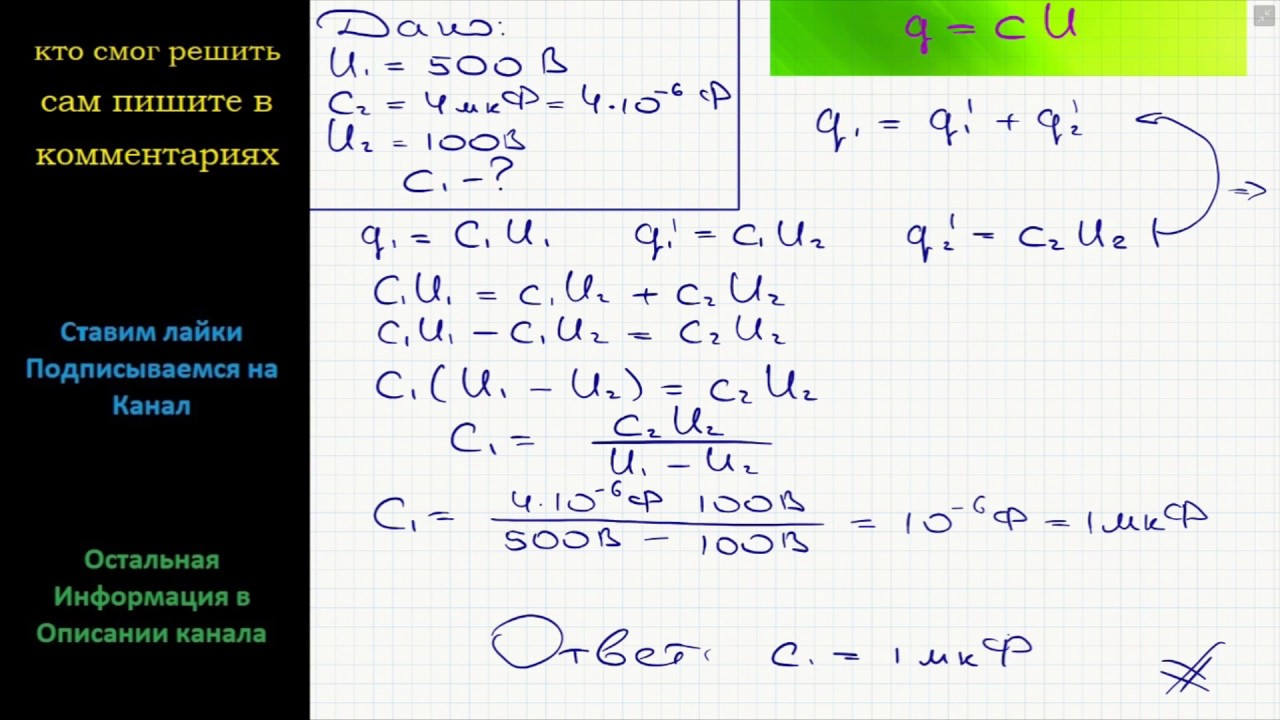 кто смог решить
сам пишите в
комментариях
Ставим лайки
Подписываемся на
Канал
Остальная
Информация в
Описании канала
Дано:
U₁ = 500 В
C₂ = 4 мкФ = 4·10⁻⁶ Ф
U₂ = 100В
C₁ - ?
q = C U
q₁ = q₁' + q₂'
⇒
q₁ = C₁ U₁ q₁' = C₁ U₂ q₂' = C₂ U₂
C₁U₁ = C₁U₂ + C₂U₂
C₁U₁ - C₁U₂ = C₂U₂
C₁(U₁ - U₂) = C₂U₂
C₁ = C₂U₂ / U₁ - U₂
C₁ = 4·10⁻⁶Ф 100В / 500В - 100В = 10⁻⁶Ф = 1мкФ
Ответ: C₁ = 1 мкФ